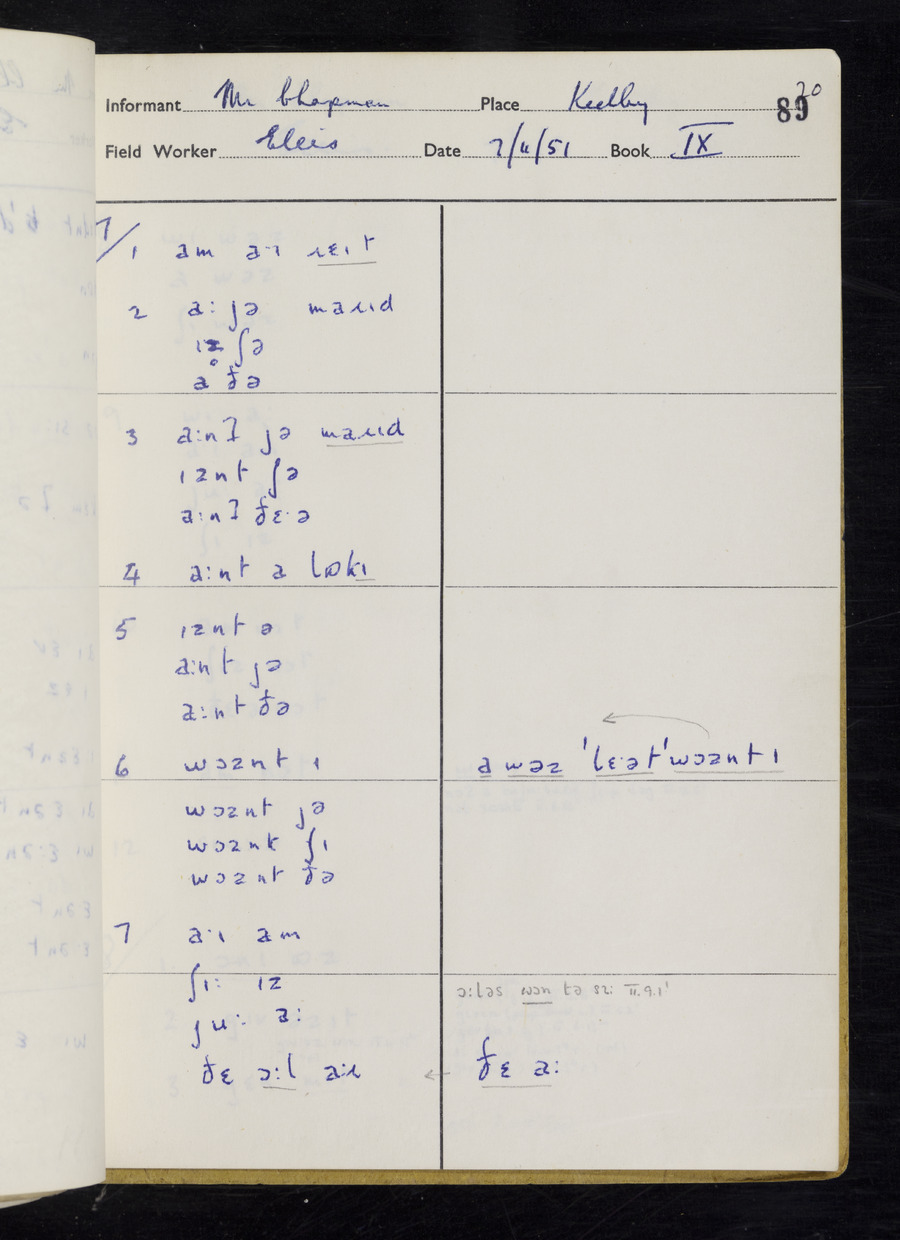 Informant Mr Chapman Place Keelby 89 20
Field Worker Ellis Date 7/11/51 Book IX
7/1 am a·ɪ ɹɛɪt
2 a: jə maɹɪd
ɪz ʃə
a ðə
3 a:nʔ jə maɹɪd
ɪznt ʃə
a:nʔ ðɛ·ə
4 a:nt a lɒkɪ
5 ɪznt ə
a:nt jə
a:nt ðə
6 wɔznt ɪ a wəz 'lɛ·ət 'wɔznt ɪ
wɔznt jə
wɔznt ʃɪ
wɔznt ðə
7 a·ɪ am
ʃɪ: ɪz ɔ:ləs wɔn tə sɛ: II.9.1'
ju· a:
ðɛ ɔ:l a:ɹ ← ðɛ a: